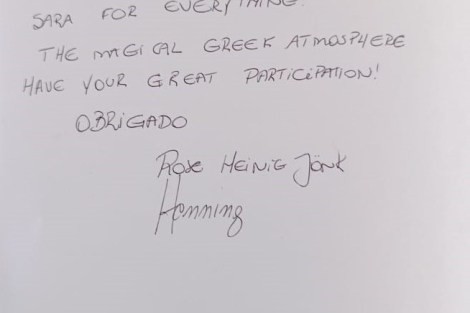 SARA FOR EVERYTHING!
THE MAGICAL GREEK ATMOSPHERE
HAVE YOUR GREAT PARTICIPATION!
OBRIGADO
Rose HEINIG JÖNK
Henning